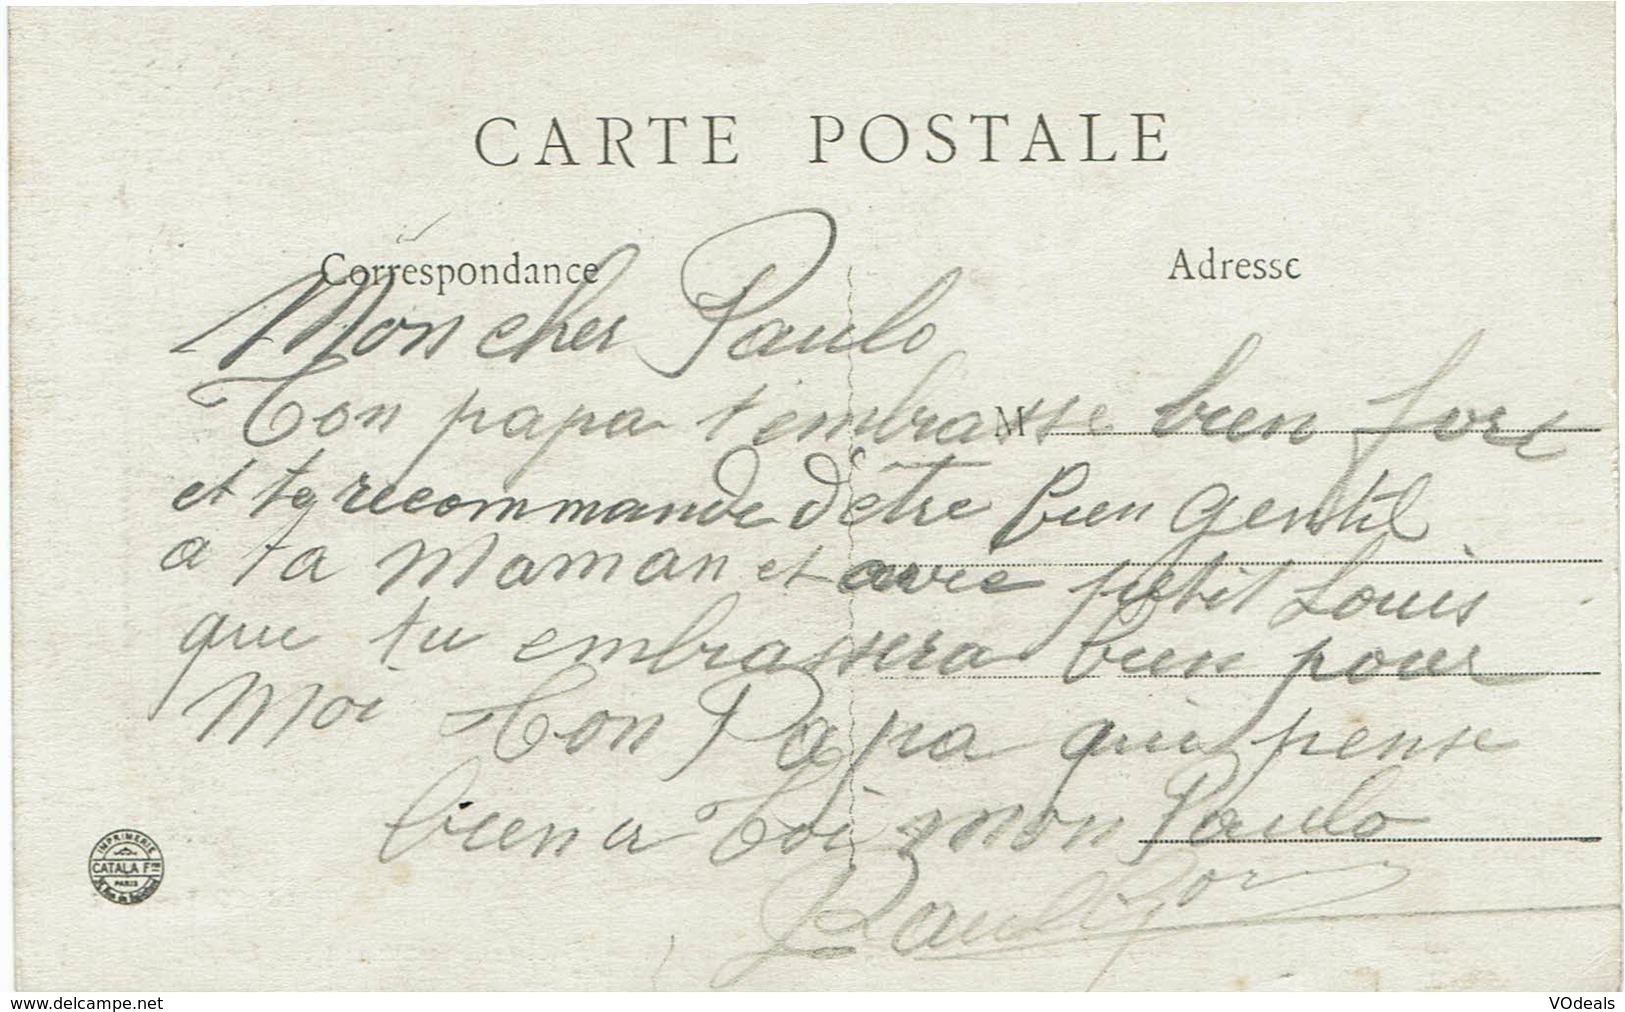 CARTE POSTALE
Correspondance
Adresse
Mon cher Paulo
Ton papa t'embrasse bien fort
M
et te recommande d'être bien gentil
a ta Maman et avec petit Louis
que tu embrassera bien pour
Moi Ton Papa qui pense
bien a Toi mon Paulo
IMPRIMERIE
CATALA Fres
PARIS
www.delcampe.net
VOdeals